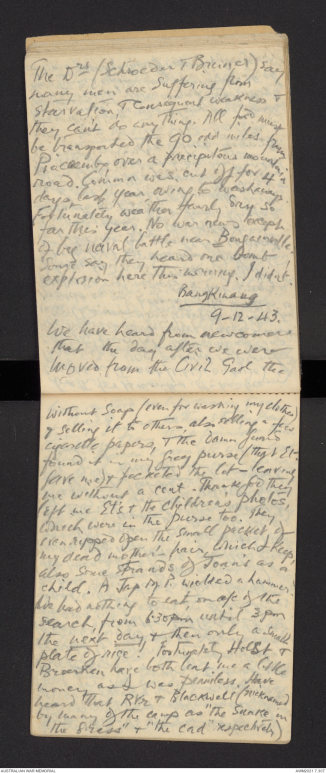 The Drs (Schroeder & Breiner) say
many men are suffering from
starvation, & consequent weakness &
they can't do anything. All food must
be transported the 90 odd miles from
over a precipitous mountain
road. Comm'n was cut off for 4
days last year owing to washaways
Fortunately weather fairly dry so
far this year. No war news except
of big naval battle near Bougainville
Some say they heard one bomb
explosion here this morning. I didn't.
Bangkinang
9-12-43.
We have heard from newcomers
that the day after we were
moved from the Civil Gaol the
without soap (even for washing my clothes)
& selling it to others, also selling a few
cigarette papers, & the damn
found it in my grey purse (that
gave me) & pocketed the lot - leaving
me without a cent. Thank God they
left me & the children's photos
which were in the purse too. They
even ripped open the small packet of
my dead mother's hair, which I keep
also some strands of Joan's as a
child. A Jap M.P. wielded a hammer.
We had nothing to eat on a/c of the
search from 6.30pm until 3pm
the next day & then only a small
plate of rice! Fortunately Holst &
have both lent me a little
money as I was penniless. Have
heard that & Blackwell (nicknamed
by many of the camp as "the Snake in
the Grass" & "the cad" respectively)
AUSTRALIAN WAR MEMORIAL